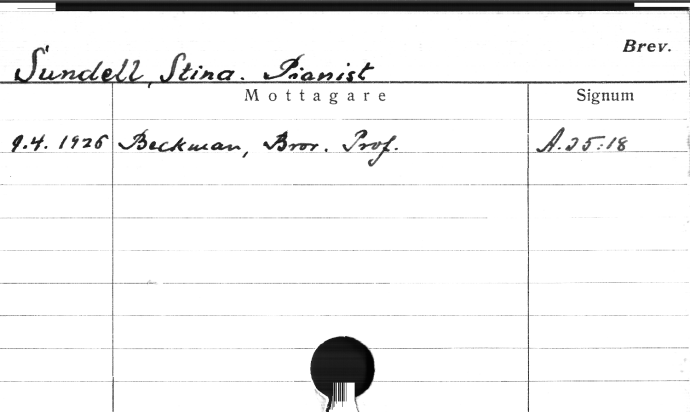 Brev.
Sundell, Stina. Pianist
Mottagare Signum
9.4. 1926 Beckman, Bror. Prof. A.25:18